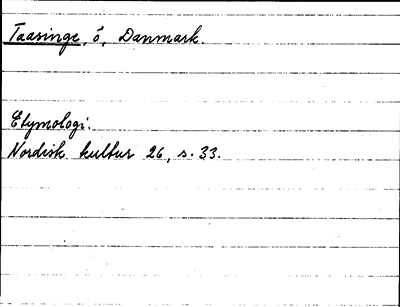 Taasinge, ö, Danmark.
Etymologi.
Nordisk kultur 26, s. 33.